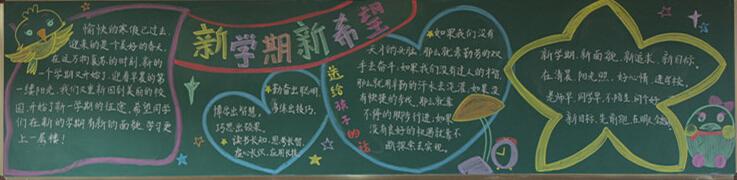 愉快的寒假已过去,
迎来的是个美好的春天。
在这万物复苏的时刻,新的
一个学期又开始了,迎着早晨的第
一缕阳光,我们又重新回到美丽的校
园,开始了新一学期的征途,希望同学
们在新的学期有新的面貌,学习更
上一层楼!
新学期新希望
勤奋出聪明,
多练出技巧,
博学出智慧,
巧思出硕果。
读书长知,思考长智,
虚心长识,应用长技。
送给孩子的话
如果我们没有
天才的头脑,那么就靠勤劳的双
手去奋斗,如果我们没有过人的才智,
那么就用辛勤的汗水去浇灌,如果没
有快捷的步伐,那么就靠
不停的脚步行进,如果
没有良好的机遇就靠不
断探索去实现。
新学期,新面貌,新追求,新目标。
在清晨,阳光 好心情 进学校。
老师早,同学早,不陌生,问个好。
新目标,是前跑,在眼